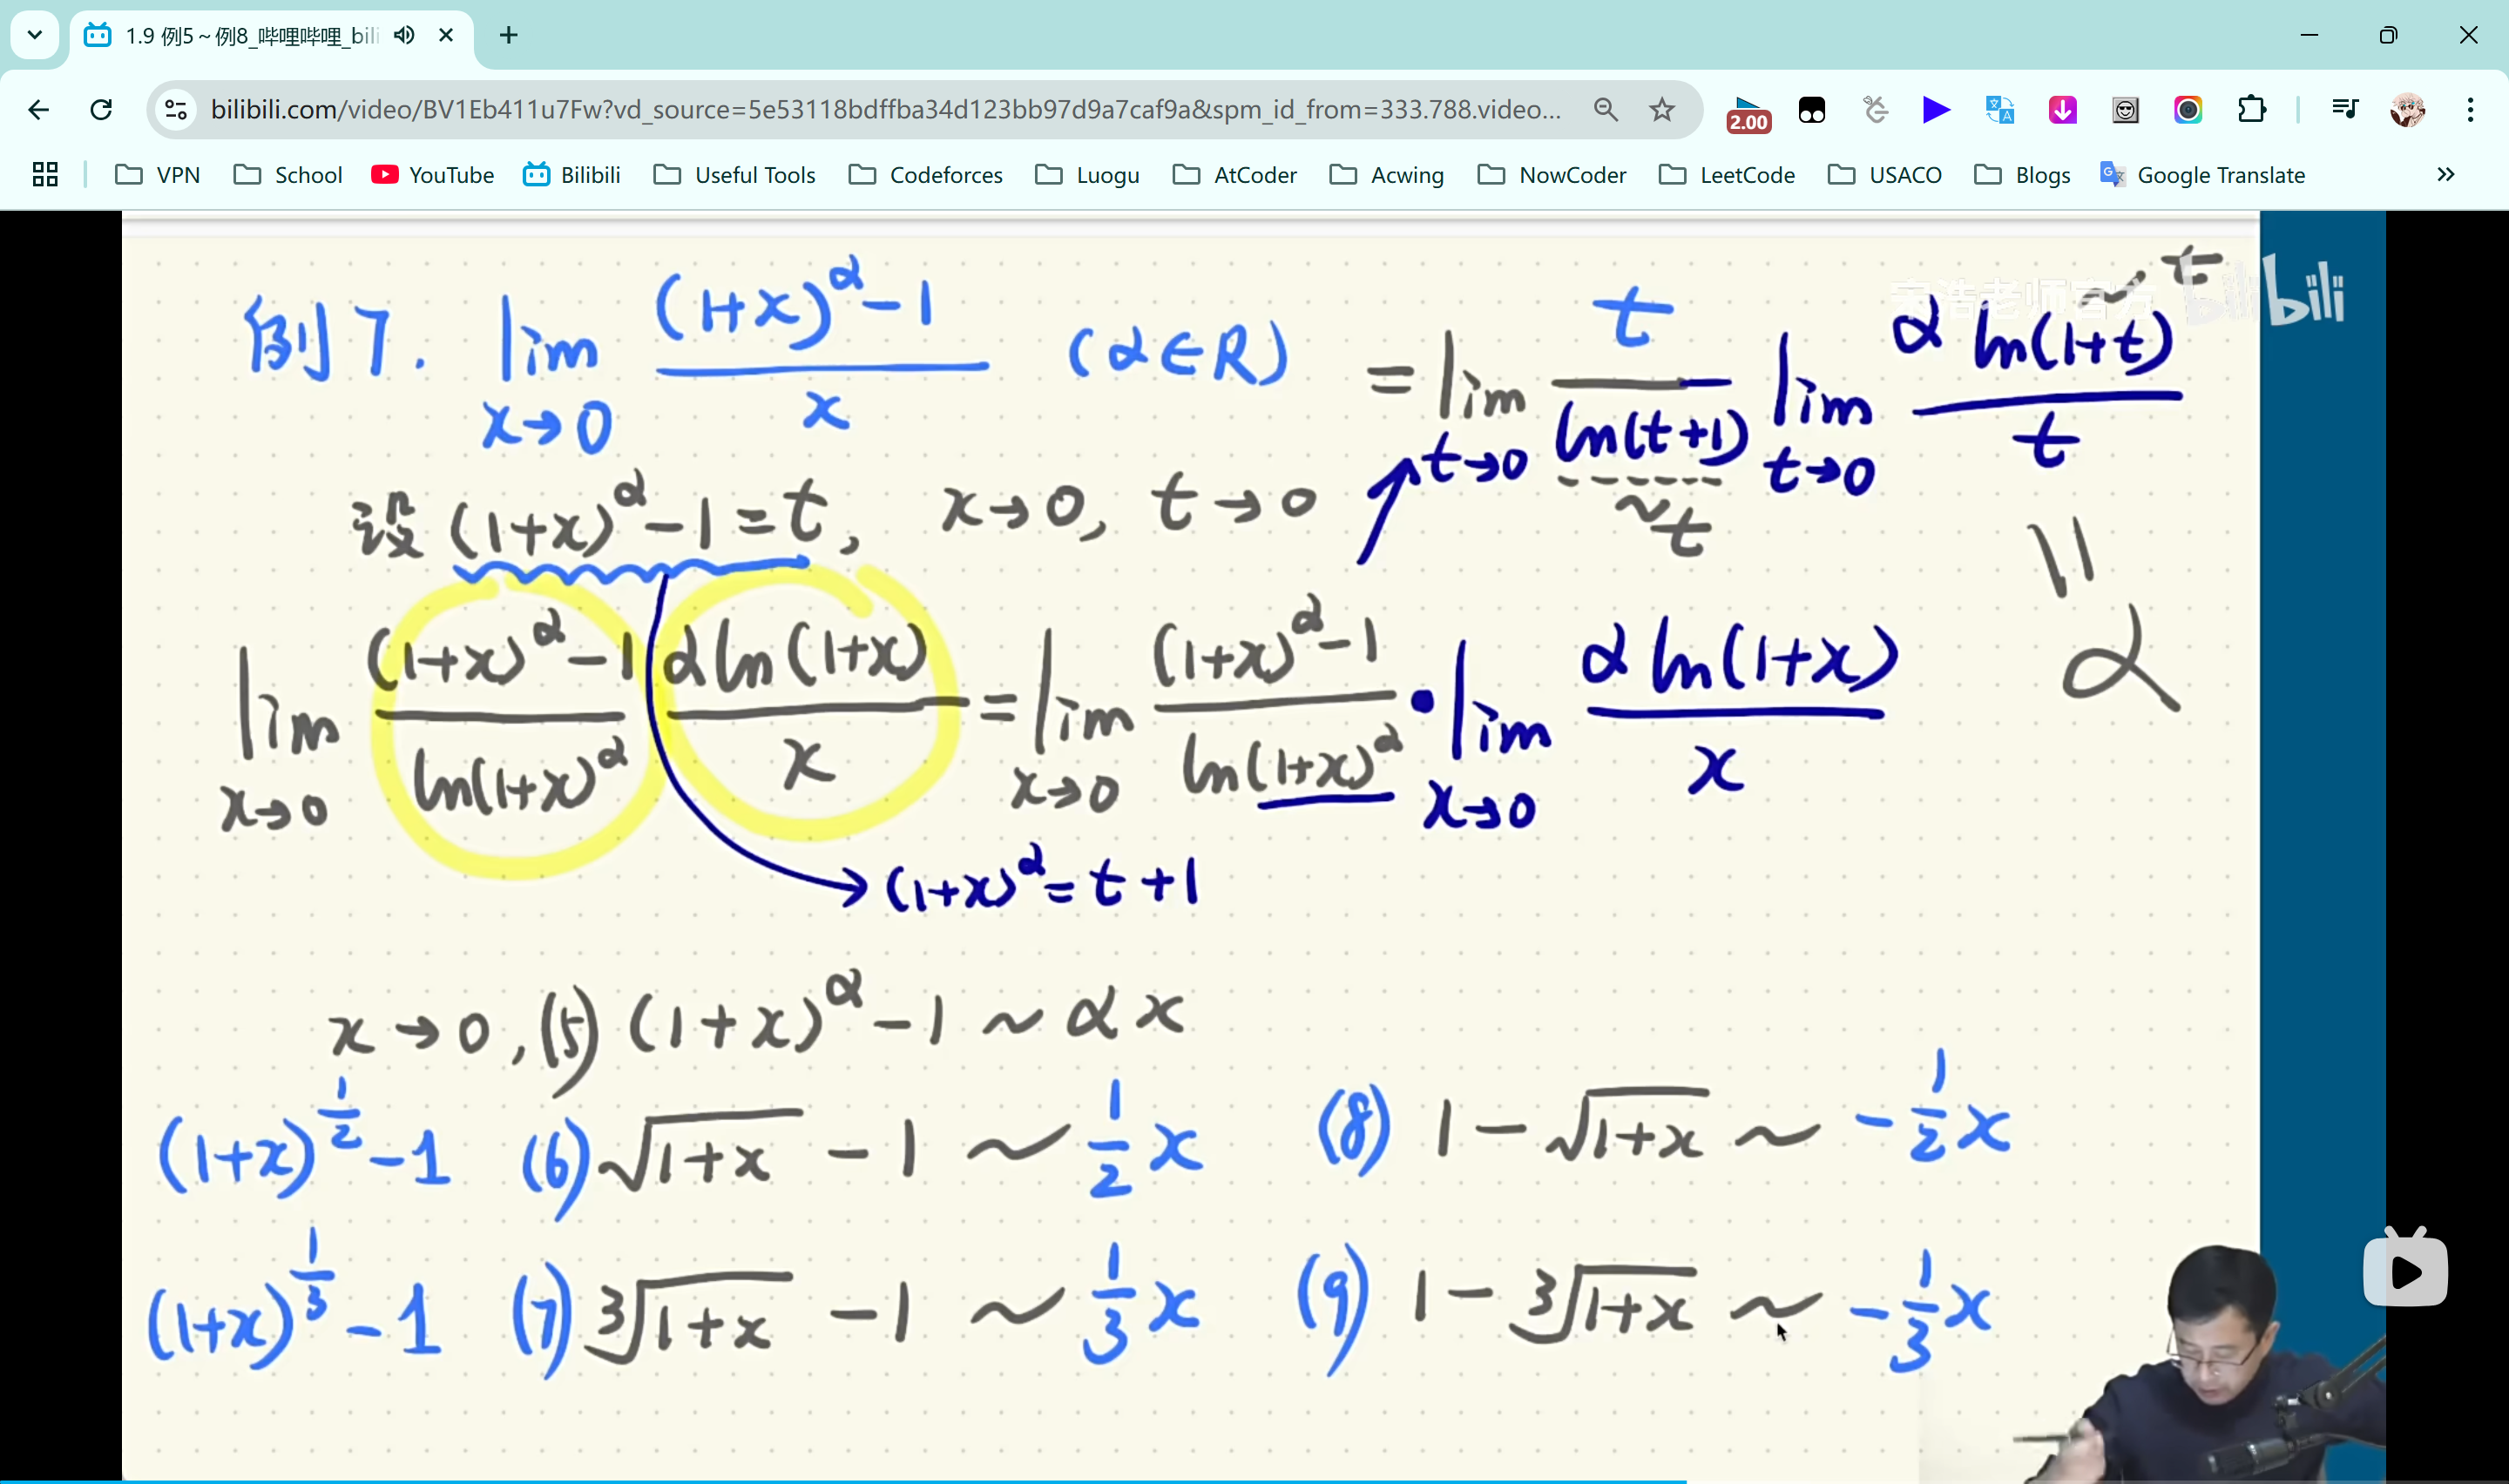 1.9 例5～例8_哔哩哔哩_bili
bilibili.com/video/BV1Eb411u7Fw?vd_source=5e53118bdffba34d123bb97d9a7caf9a&spm_id_from=333.788.video...
2.00
VPN School YouTube Bilibili Useful Tools Codeforces Luogu AtCoder Acwing NowCoder LeetCode USACO Blogs Google Translate
宋浩老师官方 bilibili
例7. lim x→0 ((1+x)^α-1)/x (α∈R) = lim t→0 t/ln(t+1) lim t→0 α ln(1+t)/t
~t ~t
设 (1+x)^α-1=t, x→0, t→0
lim x→0 ((1+x)^α-1)/ln(1+x)^α α ln(1+x)/x = lim x→0 ((1+x)^α-1)/ln(1+x)^α · lim x→0 α ln(1+x)/x
= α
→ (1+x)^α = t+1
x→0, (5) (1+x)^α-1 ~ αx
(1+x)^(1/2)-1 (6) √(1+x) -1 ~ 1/2 x (8) 1-√(1+x) ~ -1/2 x
(1+x)^(1/3)-1 (7) ³√(1+x) -1 ~ 1/3 x (9) 1-³√(1+x) ~ -1/3 x